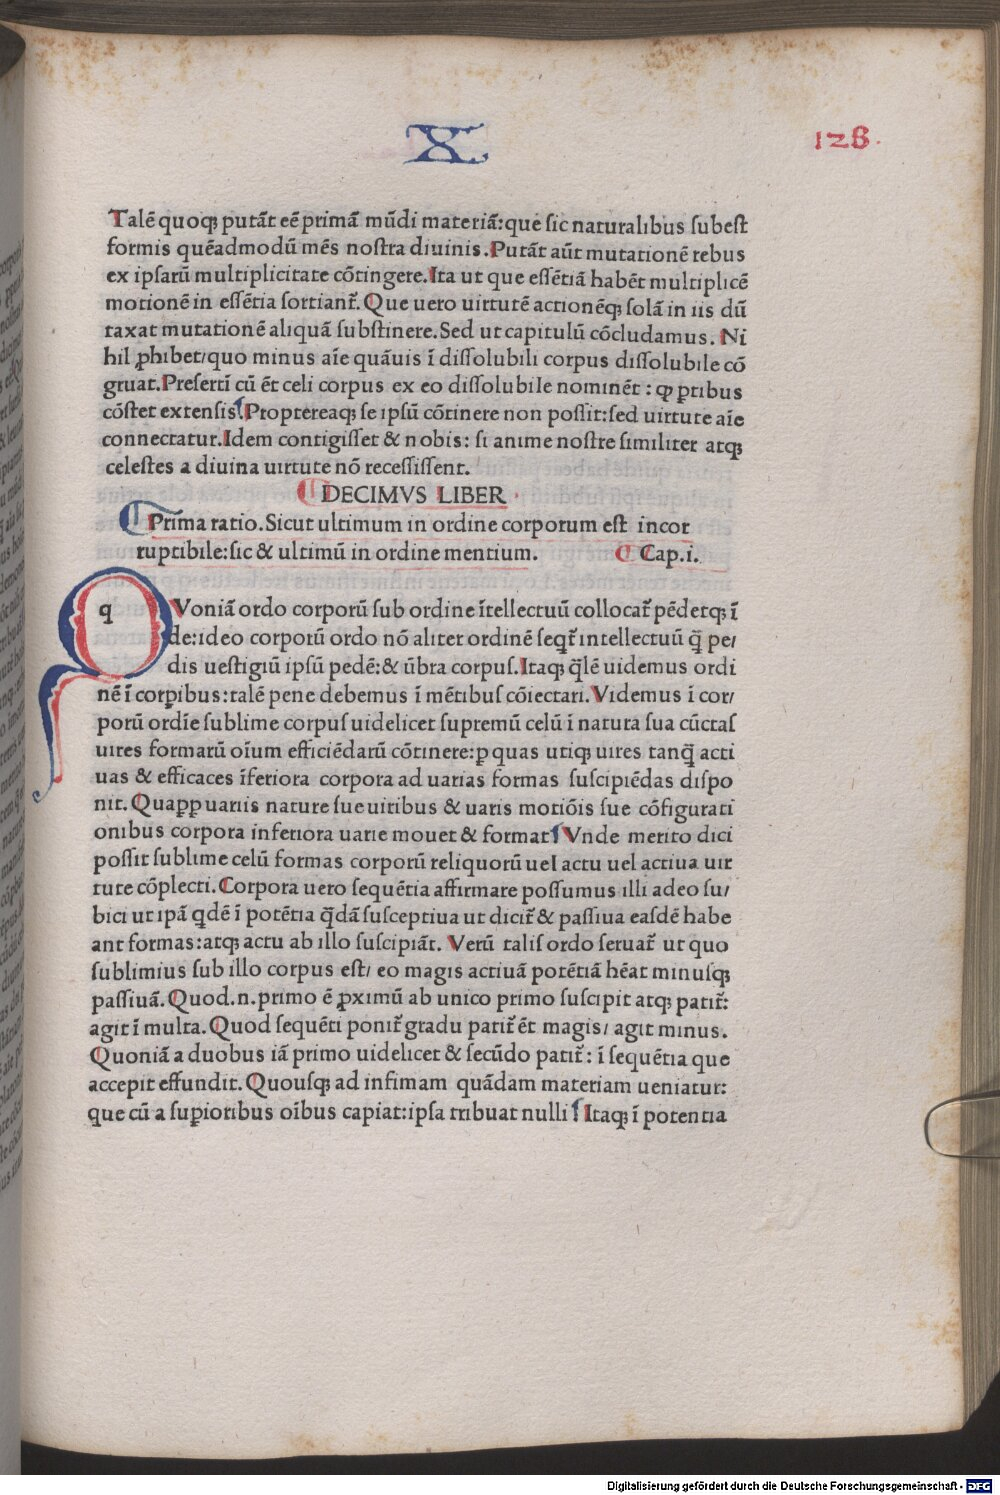 X.
128.
Talē quoqꝫ putāt eē primā mūdi materiā:que sic naturalibus subest
formis quēadmodū mēs nostra diuinis.Putāt aūt mutationē rebus
ex ipsarū multiplicitate cōtingere.Ita ut que essētiā habēt multiplicē
motionē in essētia sortianť.Que uero uirtutē actionēqꝫ solā in iis dū
taxat mutationē aliquā substinere.Sed ut capitulū cōcludamus. Ni
hil ꝓhibet/quo minus aīe quāuis ī dissolubili corpus dissolubile cō
gruat.Presertī cū ēt celi corpus ex eo dissolubile nominēt : qꝫ ꝑtibus
cōstet extensis.Proptereaqꝫ se ipsū cōtinere non possit:sed uirtute aīe
connectatur.Idem contigisset & nobis: si anime nostre similiter atqꝫ
celestes a diuina uirtute nō recessissent.
DECIMVS LIBER
Prima ratio.Sicut ultimum in ordine corporum est incor
ruptibile:sic & ultimū in ordine mentium. Cap.i.
q Voniā ordo corporū sub ordine ītellectuū collocať pēdetqꝫ ī
de:ideo corporū ordo nō aliter ordinē seqť intellectuū q̄ pe/
dis uestigiū ipsū pedē:& ūbra corpus.Itaqꝫ q̄lē uidemus ordi
nē ī corꝑibus:talē pene debemus ī mētibus cōiectari.Videmus ī cor/
porū ordīe sublime corpus uidelicet supremū celū ī natura sua cūctas
uires formatū oīum efficiēdarū cōtinere:ꝑ quas utiqꝫ uires tanq̄ acti
uas & efficaces īferiora corpora ad uarias formas suscipiēdas dispo
nit.Quaꝓꝑ uariis nature sue uiribus & uaris motiōis sue cōfigurati
onibus corpora inferiora uarie mouet & format.Vnde merito dici
possit sublime celū formas corporū reliquorū uel actu uel actiua uir
tute cōplecti.Corpora uero sequētia affirmare possumus illi adeo su/
bici ut ipā qdē ī potētia q̄dā susceptiua ut diciť & passiua easdē habe
ant formas:atqꝫ actu ab illo suscipiāt. Verū talis ordo seruať ut quo
sublimius sub illo corpus est/ eo magis actiuā potētiā hēat minusqꝫ
passiuā.Quod.n.primo ē ꝓximū ab unico primo suscipit atqꝫ patiť:
agit ī multa.Quod sequēti poniť gradu patiť ēt magis/ agit minus.
Quoniā a duobus iā primo uidelicet & secūdo patiť: ī sequētia que
accepit effundit.Quousqꝫ ad infimam quādam materiam ueniatur:
que cū a suꝑioribus oībus capiat:ipsa tribuat nulli.Itaqꝫ ī potentia
Digitalisierung gefördert durch die Deutsche Forschungsgemeinschaft - DFG